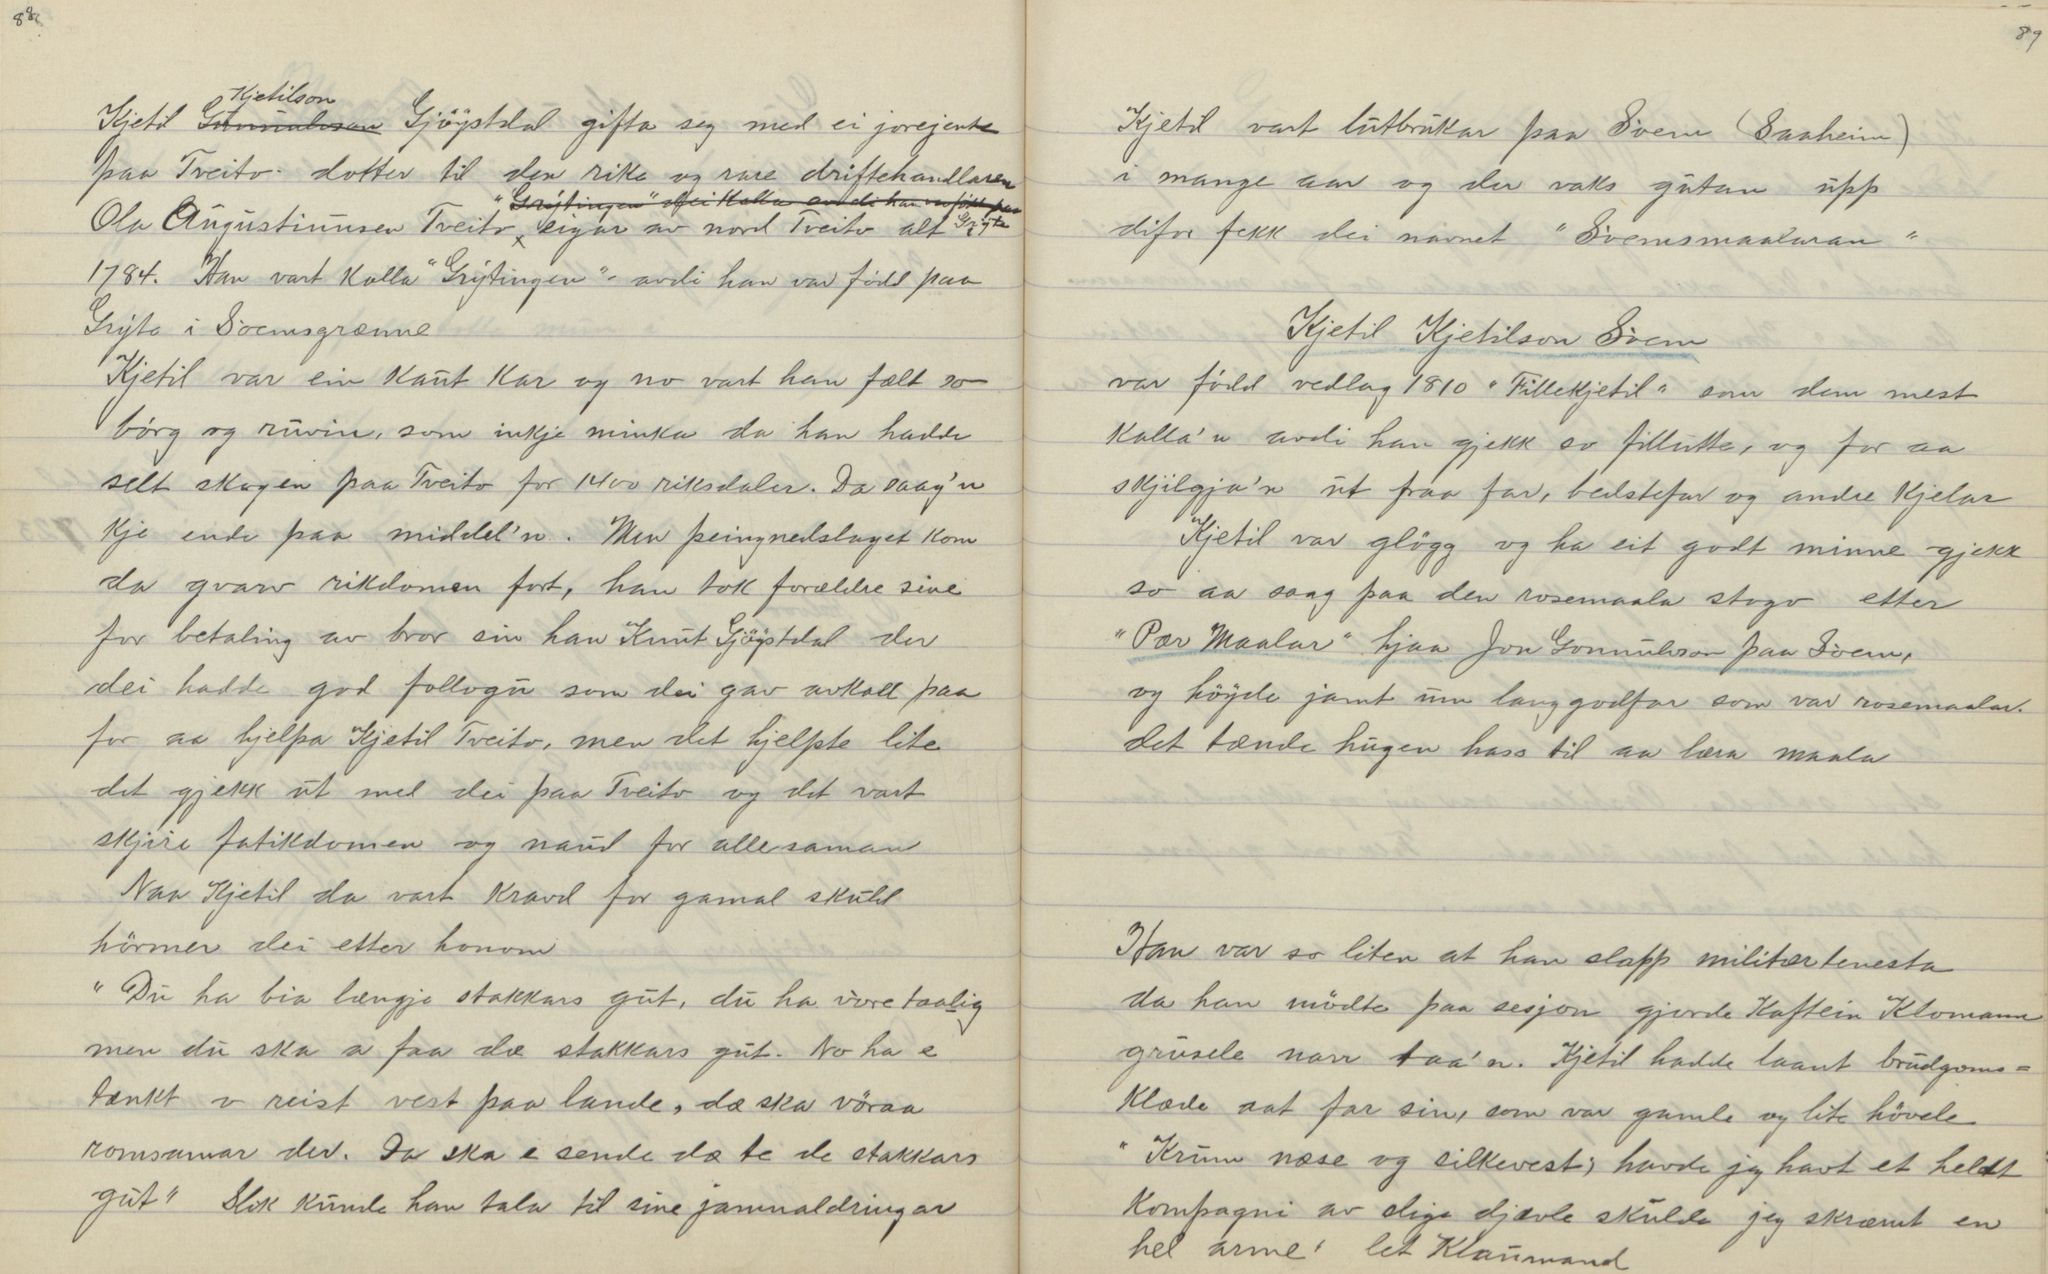 88
Kjetilson
Kjetil Gunnulvson Gjöystdal gifta seg med ei jorejente
paa Tveito - dotter til den rike og rare driftehandlaren
"Grýtingen" dei kalla avdi han var född paa
Ola Augustinusen Tveito, eigar av nord Tveito alt Grýte
1784. Han vart kalla "Grýtingen" - avdi han var född paa
Grýte i Svemsgrænne
Kjetil var ein kaut kar og no vart han fælt so
börg og ruvin, som inkje minka da han hadde
selt skogen paa Tveito for 1400 riksdaler. Da saag'n
kje ende paa middel'n. Men peingnedslaget kom
da gvarv rikdomen fort, han tok forældre sine
for betaling av bror sin han Knut Gjöystdal der
dei hadde god follogu som dei gav avkall paa
for aa hjelpa Kjetil Tveito, men det hjelpte lite
det gjekk ut med dei paa Tveito og det vart
skjire fatikdomen og naud for allesaman
Naa Kjetil da vart kravd for gamal skuld
hörmer dei etter honom
"Du ha bia længje stakkars gut, du ha vore taalig
men du ska a faa dæ stakkars gut. No ha e
tænkt o reist vest paa lande, dæ ska vöraa
romsamar der. Da ska e sende dæ te de stakkars
gut" Slik kunde han tala til sine jamnaldringar
89
Kjetil vart lutbrukar paa Svem (Saaheim)
i mange aar og der vaks gutan upp
difor fekk dei navnet "Svemsmaalaran"
Kjetil Kjetilson Svem
var född vedlag 1810 "Fillekjetil" som dem mest
kalla'n avdi han gjekk so fillutte, og for aa
skjilgja'n ut fraa far, bedstefar og andre Kjelar
Kjetil var glögg og ha eit godt minne gjekk
so aa saag paa den rosemaala stogo etter
"Pær Maalar" hjaa Jon Gonnulvson paa Svem,
og höyde jamt um langgodfar som var rosemaalar.
det tænde hugen hass til aa læra maala
Han var so liten at han slapp militærtenesta
da han mödte paa sesjon gjorde Kaftein Klomann
grusele narr taa'n. Kjetil hadde laant brudgoms=
klæde aat far sin, som var gamle og lite hövele
"Krum næse og silkevest, havde jeg havt et heldt
kompagni av slige djævle skulde jeg skræmt en
hel arme' let Klaumand